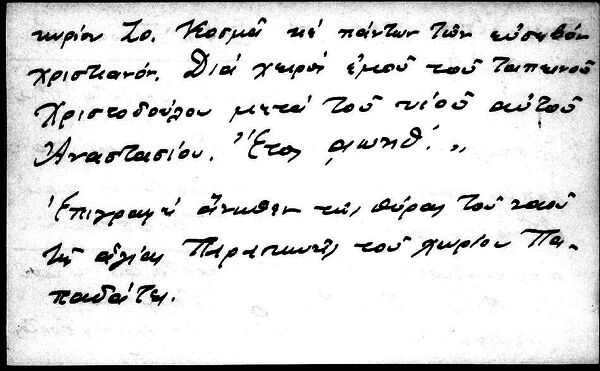 κυρίου Ἰω. Κοσμᾶ κέ πάντων τῶν εὐσεβόν
χριστιανόν. Διά χειρός ἐμοῦ τοῦ ταπεινοῦ
Χριστοδούλου μετά τοῦ υἱοῦ αὐτοῦ
Ἀναστασίου. Ἔτος ͵αωκθ΄. „
Ἐπιγραφή ἄνωθεν τῆς θύρας τοῦ ναοῦ
τῆς ἁγίας Παρασκευῆς τοῦ χωρίου Πα-
παδάτες.